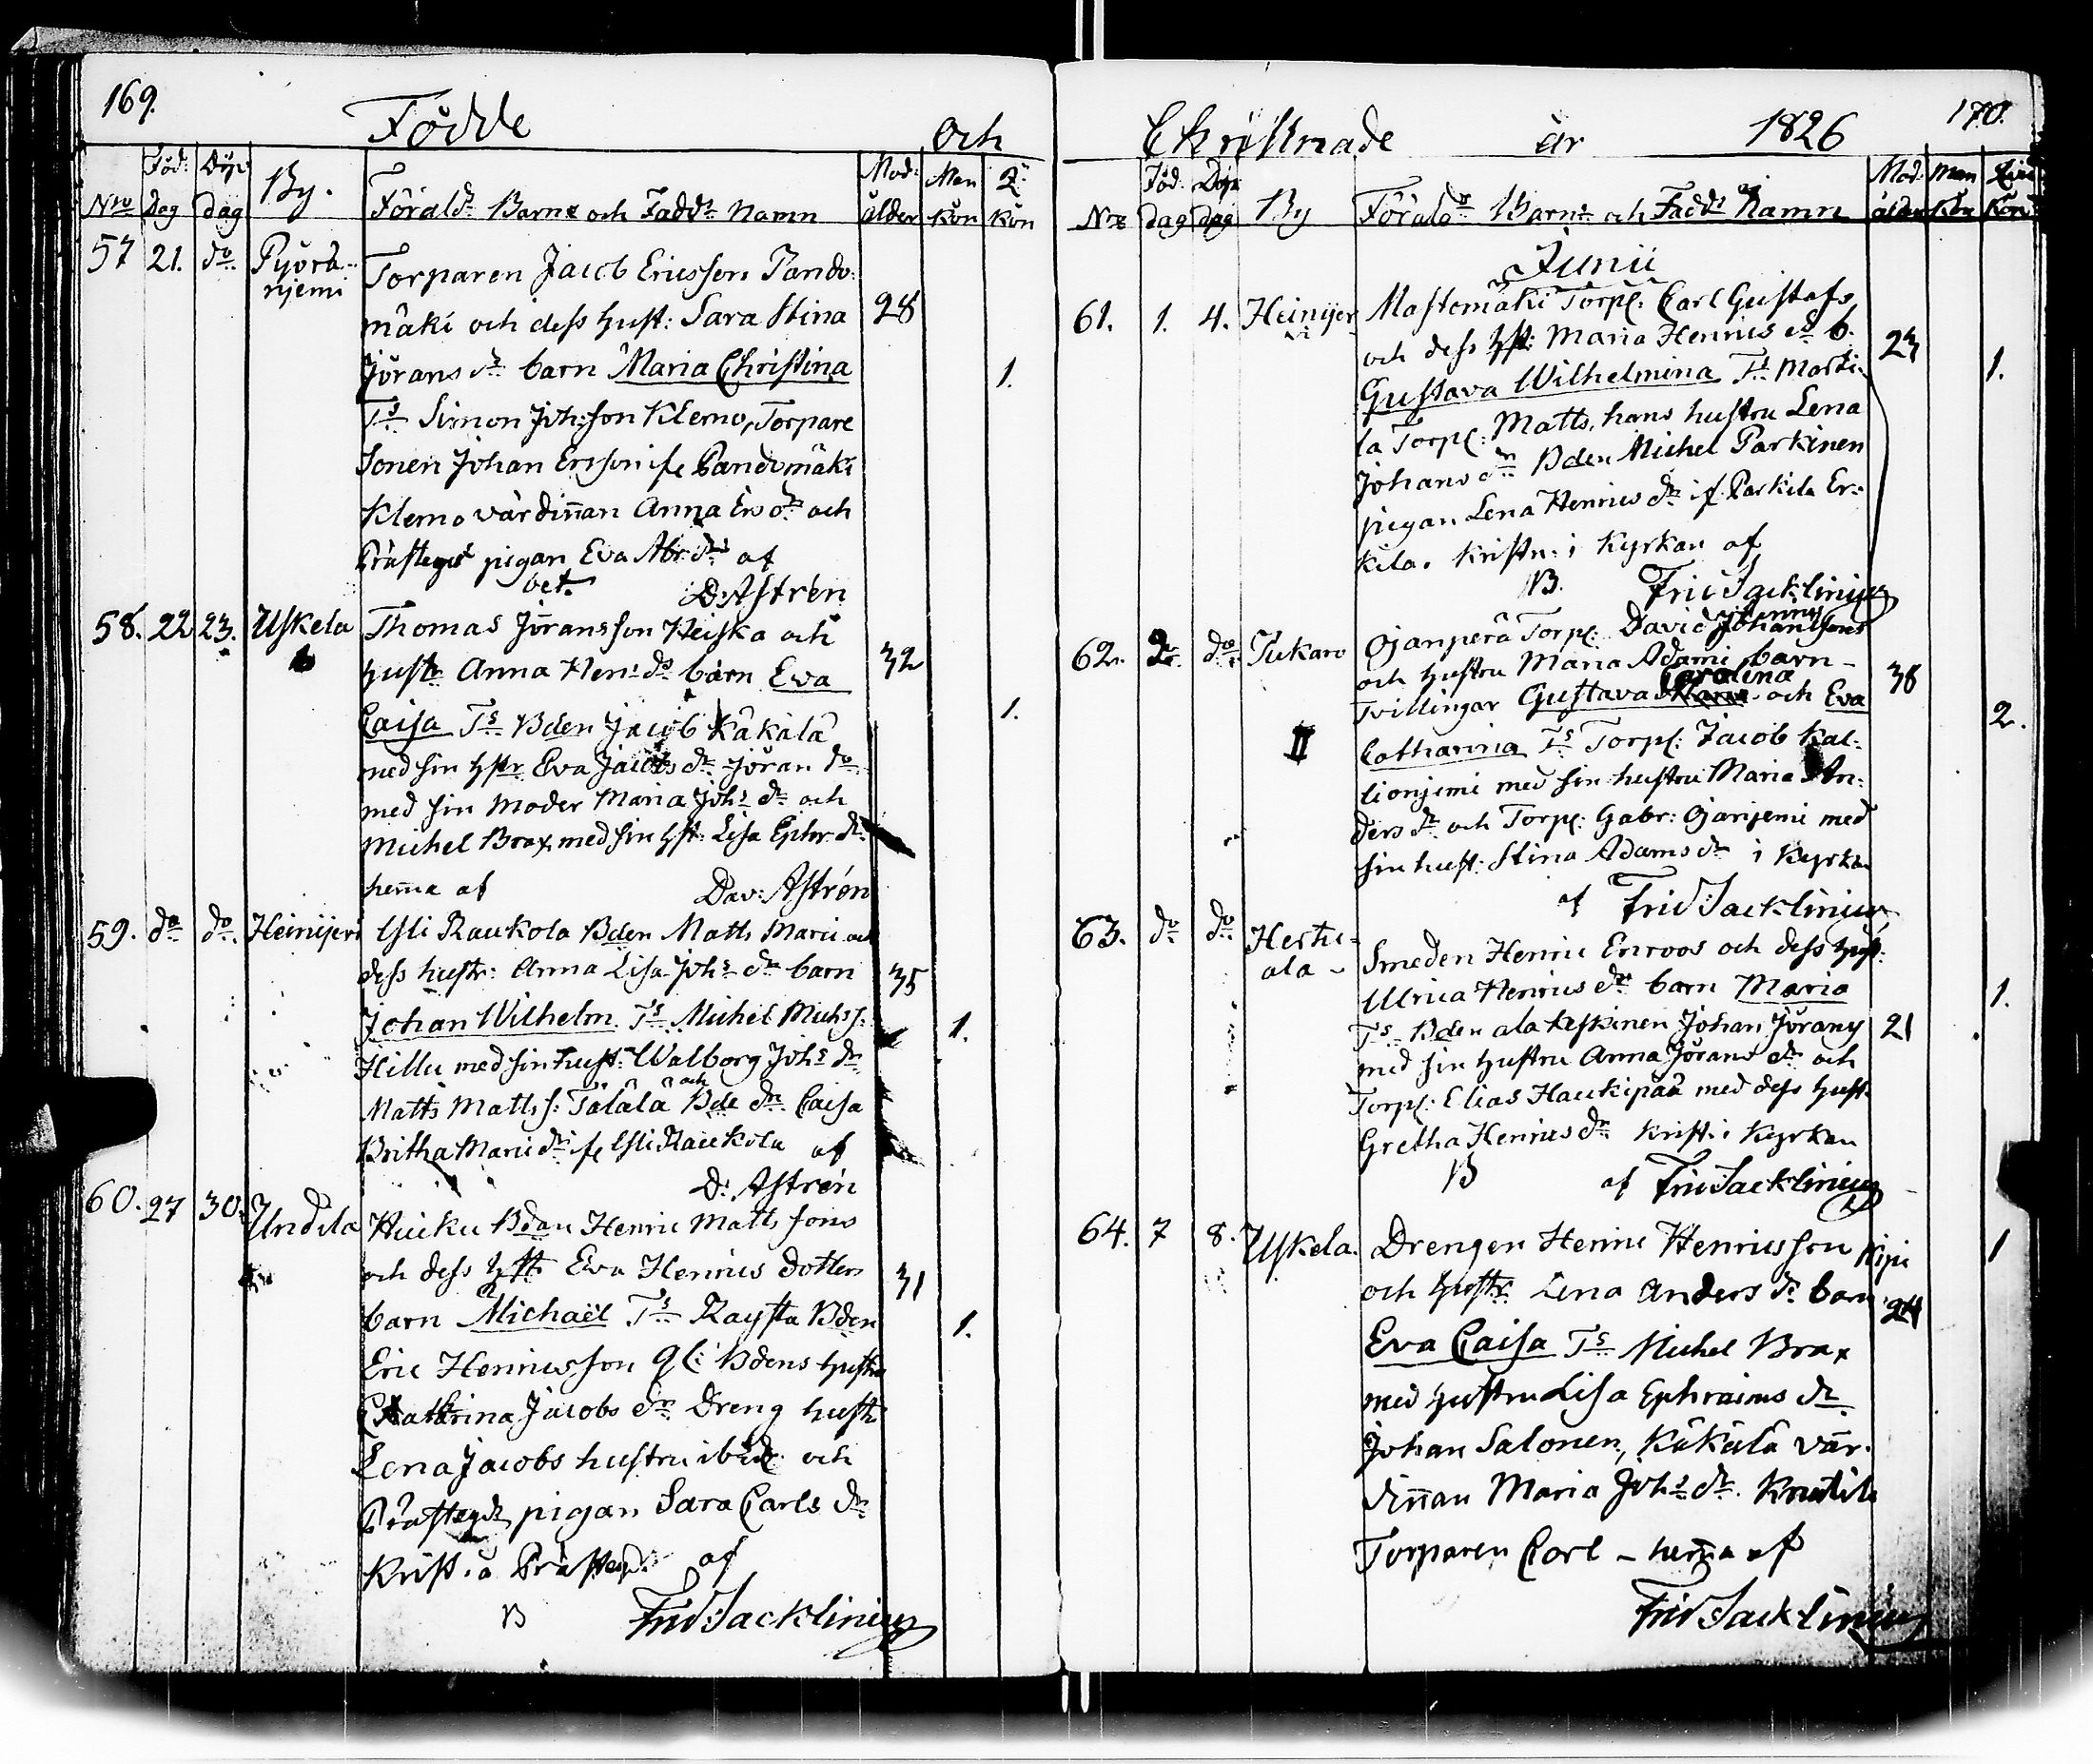 169.
Födde och
Nro Föd: Dag Döp dag By. Föräldrs Barns och Fadds Namn Mod: ålder Man kön Q: kön
57 21. do Pyörä-
njemi
Torparen Jacob Ericsson Pando-
mäki och dess hust: Sara Stina 28
Jörans dr barn Maria Christina 1.
Ts Simon Joh:sson Klemo, Torpare
Sonen Johan Ersson if Pandomäki
Klemo värdiñan Anna Ers dr och
Prästegds pigan Eva Abr: dr af
bet. D: Astrén
58. 22 23. Uskela Thomas Jöransson Heiska och
hustr Anna Hen: dr barn Ewa 32
Caisa Ts Bden Jacob Käkälä 1.
med sin hstr Eva Jacobs dr Jöran do
med sin Moder Maria Johs dr och
Michel Brax med sin hst: Lisa Ephr: dr
hem̃a af Dav: Astrén
59. do do Heinijervi Isli Raukola Bden Matts Marii och
dess hustr: Anna Lisa Johs dr barn 35
Johan Wilhelm Ts Michel Michss: 1.
Hillu med sin hust: Walborg Johs dr
Matts Matts s: Tälälä och Bde dr Caisa
Britha Marii dr if Isli Raukola af
D: Astrén
60. 27 30. Undila Huiku Bdan Henric Mattssons
och dess hst: Eva Henrics dotters 31
barn Michaël Ts Raysta Bden 1.
Eric Henricsson Bdens hustru
Catharina Jacobs dr Dreng hustr
Lena Jacobs hustru ibid: och
Prästegds pigan Sara Carls dr
Krist. å Prästegd. af
B Frid: Jacklinius
170.
Christnade år 1826
Nro Föd: dag Döp dag By Förälds Barns och Fadds Namn Mod: ålder Man kön Qvin kön
Junii
61. 1. 4. Heinijer
vi
Mastomäki Torp: Carl Gustafs
och dess hst: Maria Henrics dr b. 23
Gustava Wilhelmina Ts Marti- 1.
la Torp: Matts, hans hustru Lena
Johans dr Bden Michel Parkinen
pigan Lena Henrics dr if Parkila Er-
kila. Kristn: i Kyrkan af
B. Frid: Jacklinius
62. 2. do Tukaro Ojanperä Torp: David Johanssons
och hustru Maria Adami barn - 38
Tvillingar Gustava Carolina och Eva 2.
II Catharina Ts Torp: Jacob Kal-
lionjemi med sin hustru Maria An-
ders dr och Torp: Gabr: Ojanjemi med
sin hust: Stina Adams dr i Kyrkan
af Frid: Jacklinius
63. do do Hertu-
ala -
Smeden Henric Enroos och dess hust:
Ulrica Henrics dr barn Maria 1.
Ts Bden ala Keskinen Johan Jörans 21
med sin hustru Anna Jörans dr och
Torp: Elias Haukipää med dess hust.
Gretha Henrics dr Krist: i Kyrkan
B af Frid: Jacklinius
64. 7 8. Uskela. Drengen Henric Henricsson 1
och hustr: Lena Anders dr barn 24
Eva Caisa Ts Michel Brax
med hustru Lisa Ephraims dr
Johan Salonen, Käkälä vär-
diñan Maria Johs dr. Knutila
Torparen Carl - hem̃a af
Frid: Jacklinius